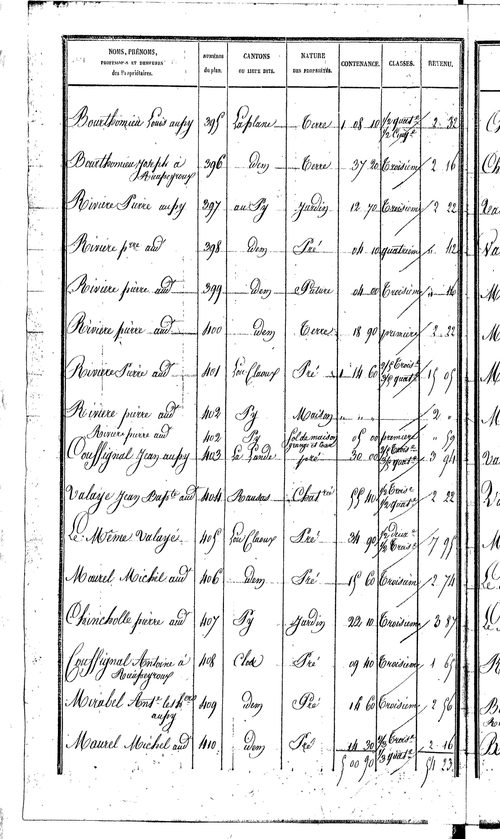 NOMS, PRÉNOMS, PROFESSIONS ET DEMEURES des Propriétaires. NUMÉROS du plan. CANTONS OU LIEUX DITS. NATURE DES PROPRIÉTÉS. CONTENANCE. CLASSES. REVENU.
Bourthomieu Louis aupy 395 Laplane Terre 1 08 10 1/2 quat.e 1/2 Cinq.e 2 32
Bourthomieu Joseph à Rieupeyroux 396 idem Terre 37 20 Troisieme 2 16
Riviere Pierre aupy 397 au Py Jardin 12 70 Troisieme 2 22
Riviere p.re aud 398 idem Pré 04 10 quatrieme " 42
Riviere pierre aud 399 idem Pature 04 00 Troisieme " 16
Riviere pierre aud 400 idem Terre 18 90 premiere 2 22
Riviere Pierre aud 401 Lou Claoux Pré 1 14 60 2/5 Trois.e 3/5 quat.e 15 05
Riviere pierre aud 402 Py Maison " " " 2 "
Riviere pierre aud 402 Py Sol de maison grange et 05 00 premiere " 59
Couffignal Jean aupy 403 La Lande pré 30 00 quat.e 3 94
Valaye Jean Bap.te aud 404 Chat.ré 55 40 1/2 Trois.e 1/2 quat.e 2 22
Le Même Valaye 405 Lou Claoux Pré 34 90 1/2 deux.e 1/2 Trois.e 7 95
Maurel Michel aud 406 idem Pré 15 60 Troisieme 2 74
Chincholle pierre aud 407 Py Jardin 22 10 Troisieme 3 87
Couffignal Antoine à Rieupeyroux 408 Clot Pré 09 40 Troisieme 1 65
Mirabel Ant.e les h.ers aupy 409 idem Pré 14 60 Troisieme 2 56
Maurel Michel aud 410 idem Pré 14 30 2/3 Trois.e 1/3 quat.e 2 16
5 00 90 54 23